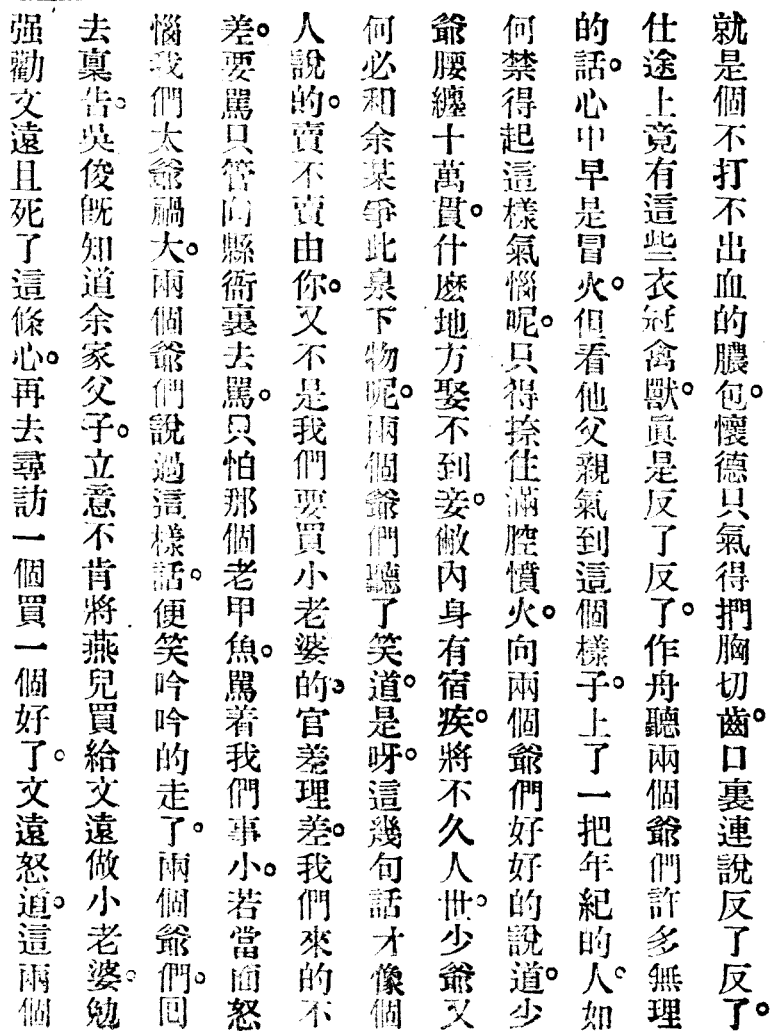 就是個不打不出血的膿包。懷德只氣得捫胸切齒。口裏連說反了反了。
仕途上竟有這些衣冠禽獸。眞是反了反了。作舟聽兩個爺們許多無理
的話。心中早是冒火。但看他父親氣到這個樣子。上了一把年紀的人。如
何禁得起這樣氣惱呢。只得捺住滿腔憤火。向兩個爺們好好的說道。少
爺腰纏十萬貫。什麽地方娶不到妾。敝內身有宿疾。將不久人世。少爺又
何必和余某爭此泉下物呢。兩個爺們聽了笑道。是呀。這幾句話才像個
人說的。賣不賣由你。又不是我們要買小老婆的。官差理差。我們來的不
差。要罵只管向縣衙裏去罵。只怕那個老甲魚。罵着我們事小。若當面怒
惱我們太爺禍大。兩個爺們說過這樣話。便笑吟吟的走了。兩個爺們。回
去稟告。吳俊旣知道余家父子。立意不肯將燕兒買給文遠做小老婆。勉
强勸文遠且死了這條心。再去尋訪一個買一個好了。文遠怒道。這兩個